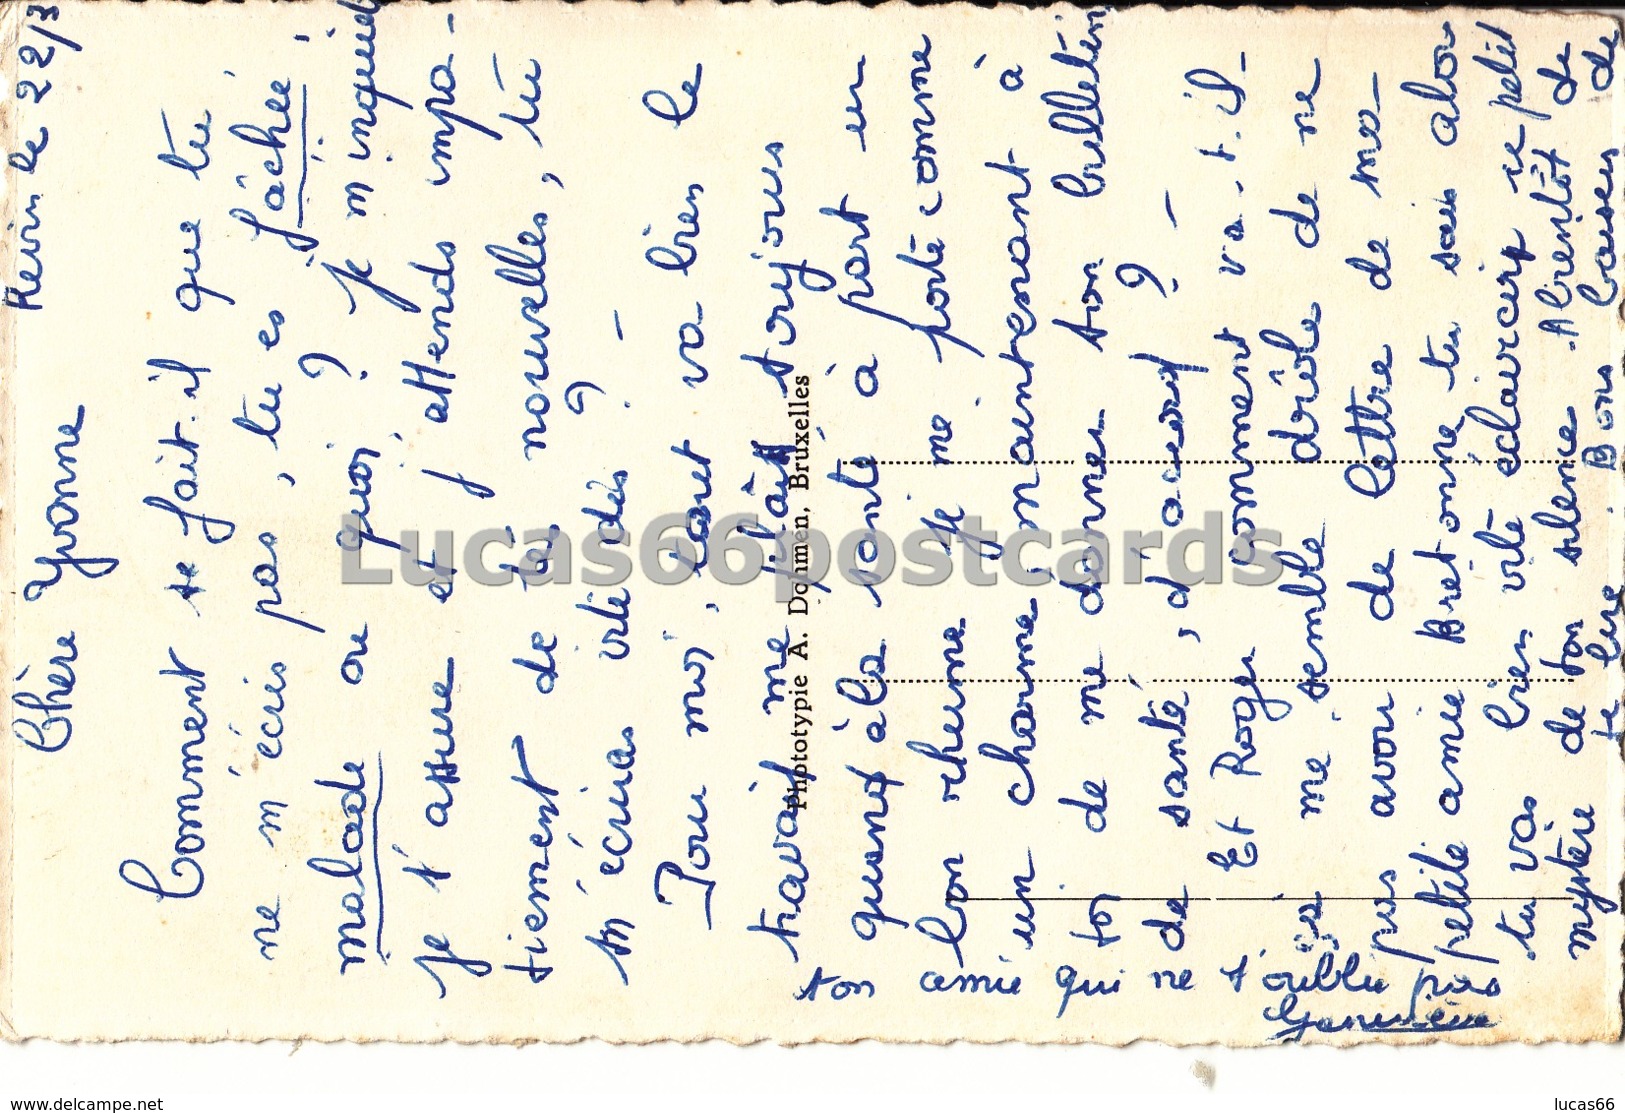 Revin le 22/3
Chère Yvonne
Comment se fait-il que tu
ne m'écris pas, tu es fâchée
malade ou quoi ? je m'inquiète
je t'assure et j'attends impa-
tiement de tes nouvelles, tu
m'écriras vite dis ? -
Pour moi, tout va bien le
travail me plait toujours
quand à la santé à part un
bon rhume je me porte comme
un charme, maintenant à
toi de me donner ton bulletin
de santé, d'accord ? -
Et Roger comment va-t-il -
ça me semble drôle de ne
pas avoir de lettre de ma
petite amie Bretonne tu sais alors
tu vas bien vite éclaircir ce petit
mystère de ton silence. A bientôt de
te lire. Bons baisers de
ton amie qui ne t'oublie pas
Geneviève
Phototypie A. Dohmen, Bruxelles
Lucas66postcards
www.delcampe.net
lucas66